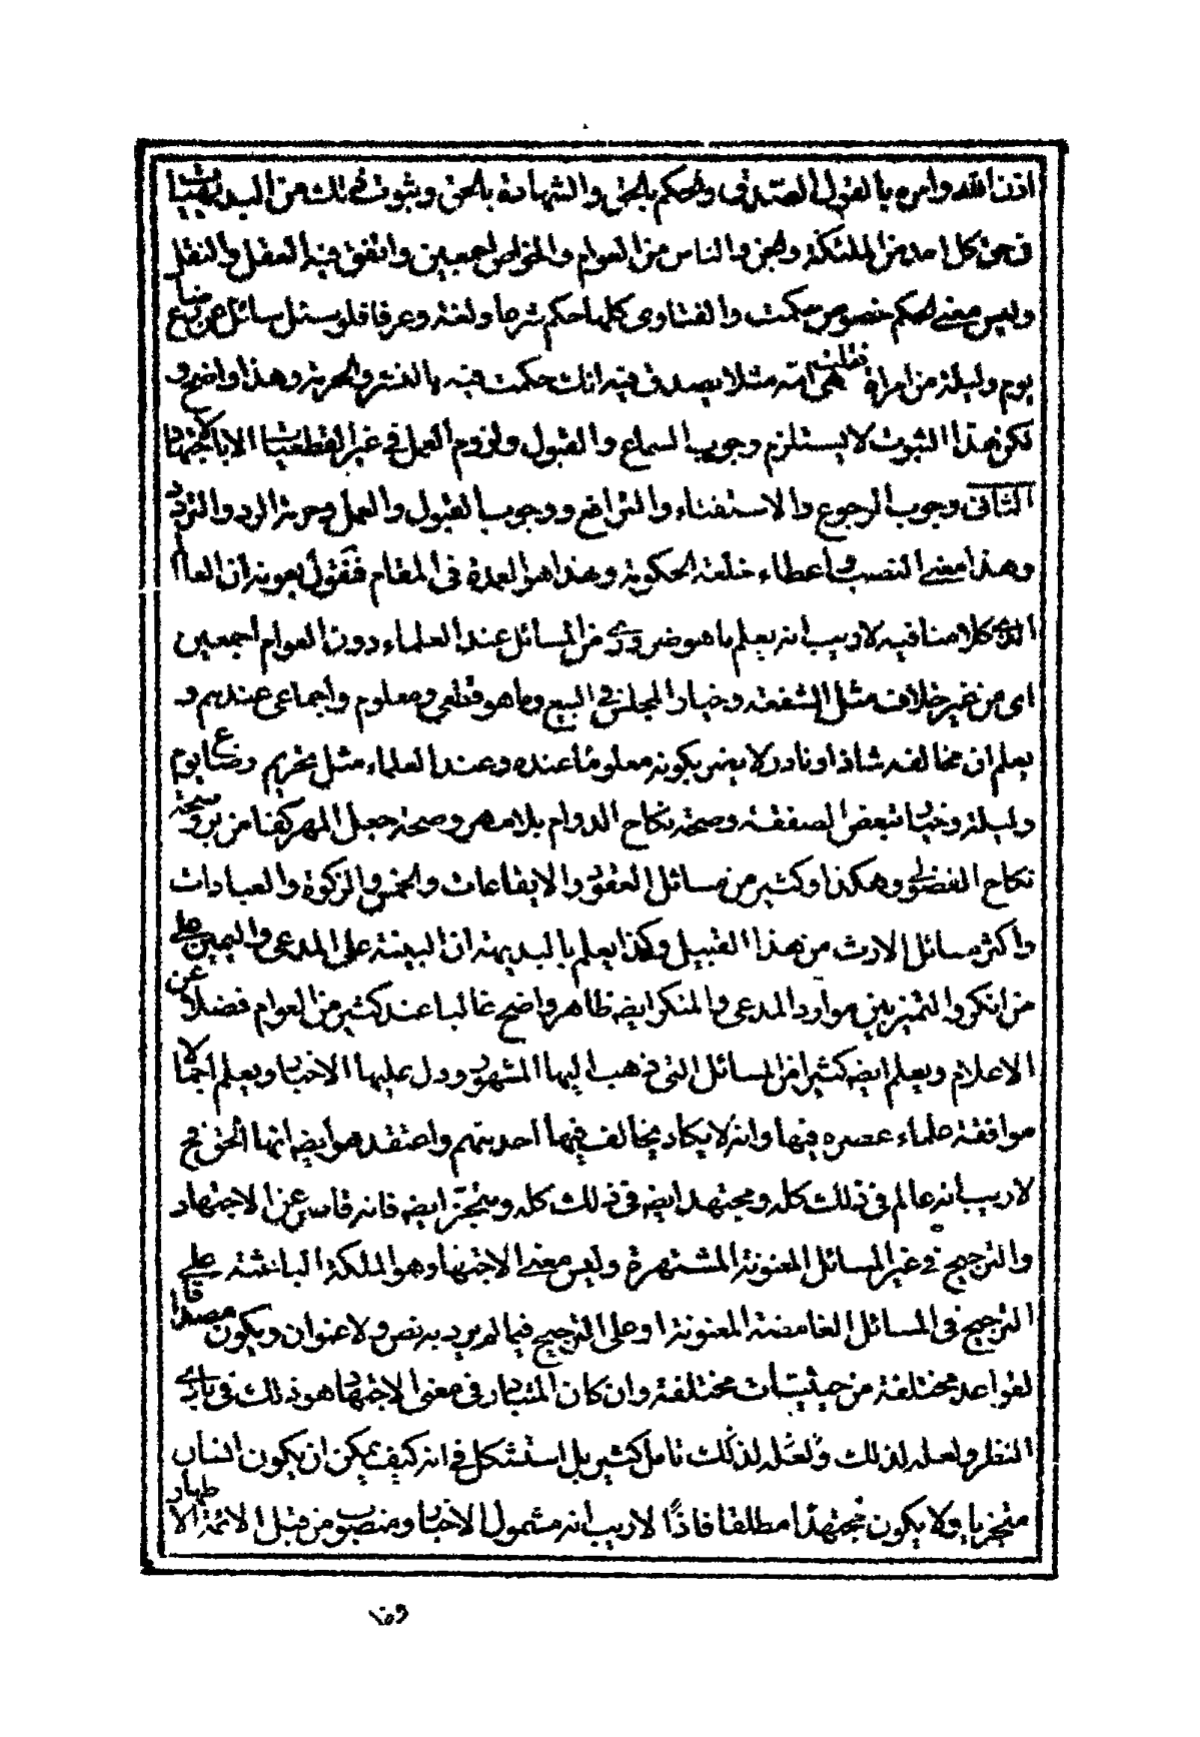 اذن الله وامره بالقول الصّدق والحكم بالحق والشهادة بالحق وثبوت ذلك من البديهيات
فى حق كل احد من الملئكة والجن والناس من العوام والخواص اجمعين واتفق فيه العقل والنقل
وليس معنى الحكم خصوص حكمت والفتاوى كلها حكم شرعا ولغة وعرفا فلو سئل سائل عن رضاع
يوم وليلة من امراة فقلت هى امّه مثلا يصدق فيه انك حكمت فيه بالنشر والحرمة وهذا واضح و
لكن هذا الثبوت لا يستلزم وجوب السماع والقبول ولزوم العمل فى غير القطعيات الا بالاجتهاد
الثانى وجوب الرجوع والاستفتاء والترافع ووجوب القبول والعمل وحرمة الرد والتردد
وهذا معنى النصب واعطاء خلعة الحكومة وهذا هو العمدة فى المقام فنقول بعونه ان العالم
الذى كلامنا فيه لا ريب انه يعلم ما هو ضرورى من المسائل عند العلماء دون العوام اجمعين
اى من غير خلاف مثل الشفعة وخيار المجلس فى البيع وما هو قطعى ومعلوم واجماعى عندهم و
يعلم ان مخالفه شاذ او نادر لا يضر بكونه معلوما عنده وعند العلماء مثل تحريم رضاع يوم
وليلة وخيار تبعض الصفقة وصحة نكاح الدوام بلا مهر وصحة جعل المهر كفنا من بر وصحة
نكاح الفضولى وهكذا وكثير من مسائل العقود والايقاعات والخمس والزكوة والعبادات
واكثر مسائل الارث من هذا القبيل وكذا يعلم بالبديهة ان البينة على المدعى واليمين على
من انكر والتميز بين موارد المدعى والمنكر ايضه ظاهر واضح غالبا عند كثير من العوام فضلا عن
الاعلام ويعلم ايضه كثيرا من المسائل التى ذهب اليها المشهور ودل عليها الاخبار ويعلم اجمالا
موافقة علماء عصره فيها وانه لا يكاد يخالف فيها احد منهم واعتقد هو ايضه انها الحق فح
لا ريب انه عالم فى ذلك كله ومجتهد ايضه فى ذلك كله ومتجزّ ايضه فانه قاصر عن الاجتهاد
والترجيح فى غير المسائل المعنونة المشتهرة وليس معنى الاجتهاد هو الملكة الباعثة على
الترجيح فى المسائل الغامضة المعنونة او على الترجيح فيما لم يرد به نص ولا عنوان ويكون مصداقا
لقواعد مختلفة من حيثيات مختلفة وان كان المتبادر فى معنى الاجتهاد هو ذلك فى بادى
النظر ولعله لذلك ولعله لذلك تامل كثير بل استشكل فى انه كيف يمكن ان يكون انسان
متجزيا ولا يكون مجتهدا مطلقا فاذاً لا ريب انه مشمول الاخبار ومنصوب من قبل الائمة الاطهار